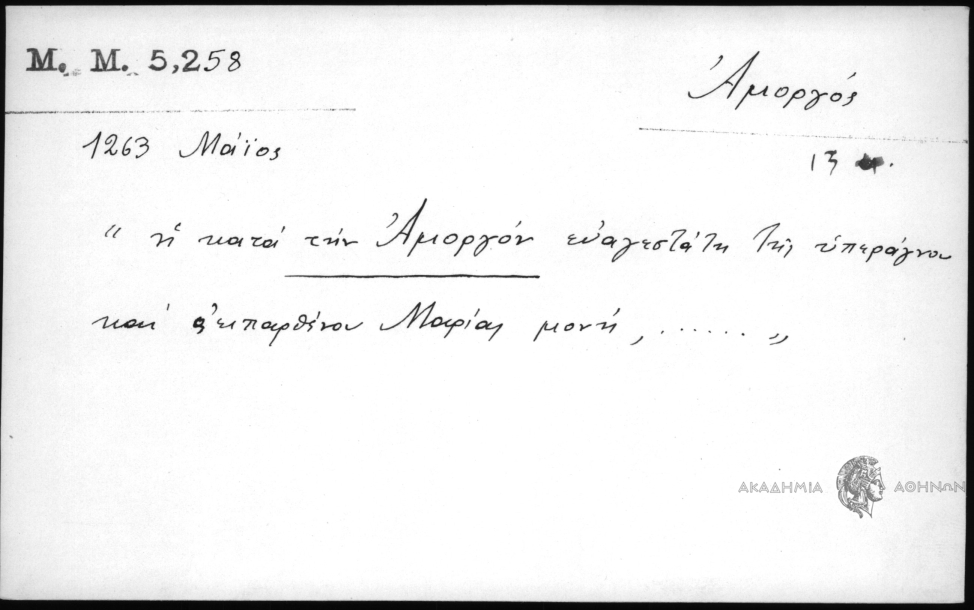 Μ. Μ. 5,258
Ἀμοργός
1263 Μάϊος
13
“ ἡ κατά τήν Ἀμοργόν εὐαγεστάτη τῆς ὑπεράγνου
καί ἀειπαρθένου Μαρίας μονή, ...... „
ΑΚΑΔΗΜΙΑ ΑΘΗΝΩΝ